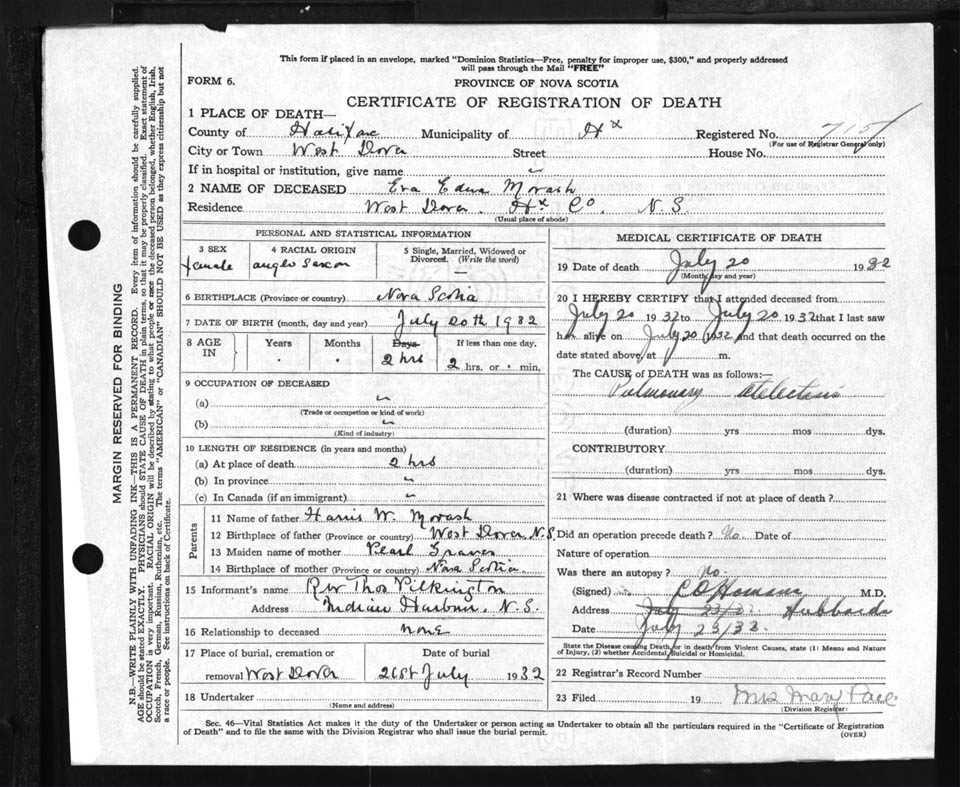 This form if placed in an envelope, marked "Dominion Statistics—Free, penalty for improper use, $300," and properly addressed
will pass through the Mail "FREE"
FORM 6.
PROVINCE OF NOVA SCOTIA
CERTIFICATE OF REGISTRATION OF DEATH
1 PLACE OF DEATH—
County of Halifax Municipality of Hx Registered No. 7151
(For use of Registrar General only)
City or Town West Dover Street House No.
If in hospital or institution, give name "
2 NAME OF DECEASED Eva Edna Morash
Residence West Dover. Hx Co. N.S.
(Usual place of abode)
PERSONAL AND STATISTICAL INFORMATION
3 SEX
female
4 RACIAL ORIGIN
anglo Saxon
5 Single, Married, Widowed or
Divorced. (Write the word)
—
6 BIRTHPLACE (Province or country) Nova Scotia
7 DATE OF BIRTH (month, day and year) July 20th 1932
8 AGE IN
Years
Months
Days
2 hrs
If less than one day,
2 hrs. or min.
9 OCCUPATION OF DECEASED
(a) "
(Trade or occupation or kind of work)
(b) "
(Kind of industry)
10 LENGTH OF RESIDENCE (in years and months)
(a) At place of death 2 hrs
(b) In province "
(c) In Canada (if an immigrant) "
Parents
11 Name of father Harris W. Morash
12 Birthplace of father (Province or country) West Dover N.S.
13 Maiden name of mother Pearl Graves
14 Birthplace of mother (Province or country) Nova Scotia
15 Informant's name Rev Thos Pilkington
Address Indian Harbour. N.S.
16 Relationship to deceased none
17 Place of burial, cremation or Date of burial
removal West Dover 21st July 1932
18 Undertaker
(Name and address)
MEDICAL CERTIFICATE OF DEATH
19 Date of death July 20 1932
(Month, day and year)
20 I HEREBY CERTIFY that I attended deceased from
July 20 1932 to July 20 1932 that I last saw
her alive on July 20 1932 and that death occurred on the
date stated above, at m.
The CAUSE of DEATH was as follows:—
Pulmonary Atelectasis
(duration) yrs mos dys.
CONTRIBUTORY
(duration) yrs mos dys.
21 Where was disease contracted if not at place of death?
Did an operation precede death? No. Date of
Nature of operation
Was there an autopsy? no.
(Signed) M.D.
Address Hubbards
Date July 23/32.
State the Disease causing Death, or in death from Violent Causes, state (1) Means and Nature
of Injury, (2) whether Accidental, Suicidal or Homicidal.
22 Registrar's Record Number
23 Filed 19 Mrs Mary Pace
(Division Registrar)
Sec. 46—Vital Statistics Act makes it the duty of the Undertaker or person acting as Undertaker to obtain all the particulars required in the "Certificate of Registration
of Death" and to file the same with the Division Registrar who shall issue the burial permit.
(OVER)
MARGIN RESERVED FOR BINDING
N.B.—WRITE PLAINLY WITH UNFADING INK—THIS IS A PERMANENT RECORD. Every item of information should be carefully supplied.
AGE should be stated EXACTLY. PHYSICIANS should STATE CAUSE OF DEATH in plain terms, so that it may be properly classified. Exact statement of
OCCUPATION is very important. RACIAL ORIGIN will be described by stating to what people or race the deceased person belonged, whether English, Irish,
Scotch, French, German, Russian, Ruthenian, etc. The terms "AMERICAN" or "CANADIAN" SHOULD NOT BE USED as they express citizenship but not
a race or people. See instructions on back of Certificate.